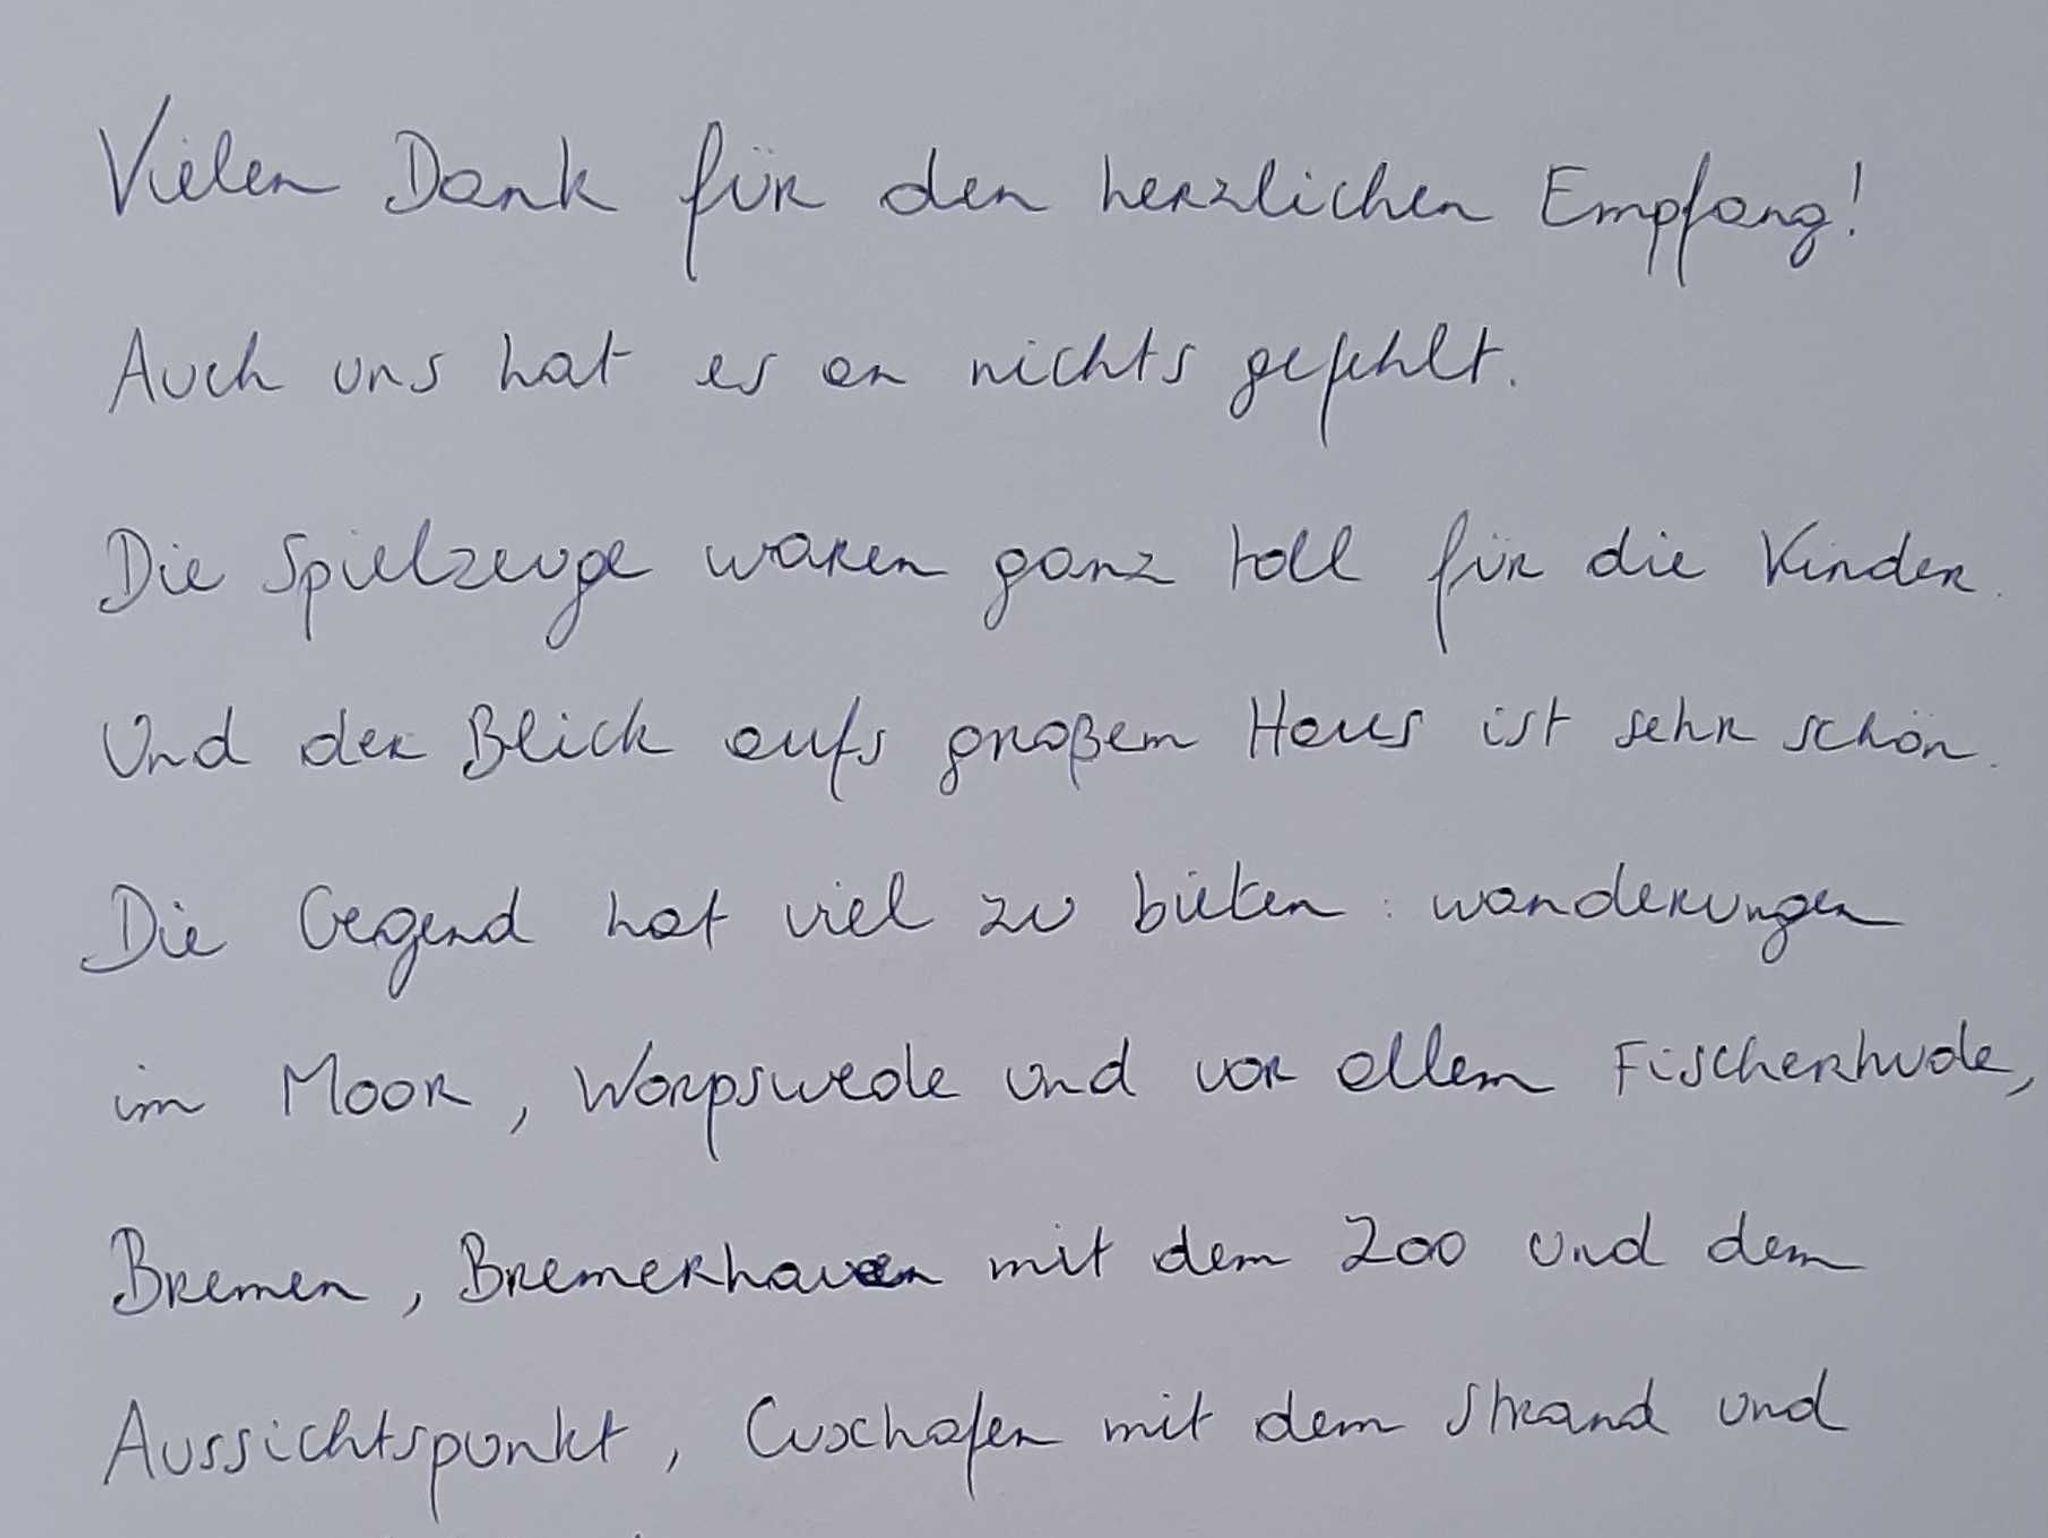 Vielen Dank für den herzlichen Empfang!
Auch uns hat es an nichts gefehlt.
Die Spielzeuge waren ganz toll für die Kinder.
Und der Blick aufs großem Haus ist sehr schön.
Die Gegend hat viel zu bieten : wanderungen
im Moor, Worpswede und vor allem Fischerhude,
Bremen, Bremerhaven mit dem Zoo und dem
Aussichtspunkt, Cuxhafen mit dem Strand und